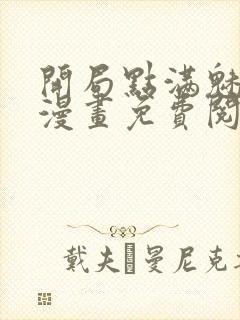 開局點滿魅
漫畫免費閱
戴夫·曼尼克